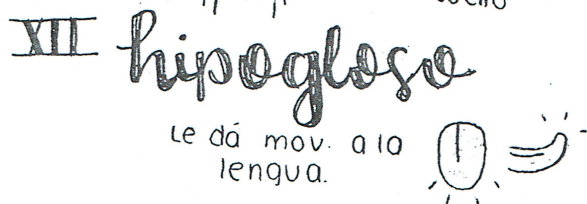 XII hipogloso
Le dá mov. a la
lengua.